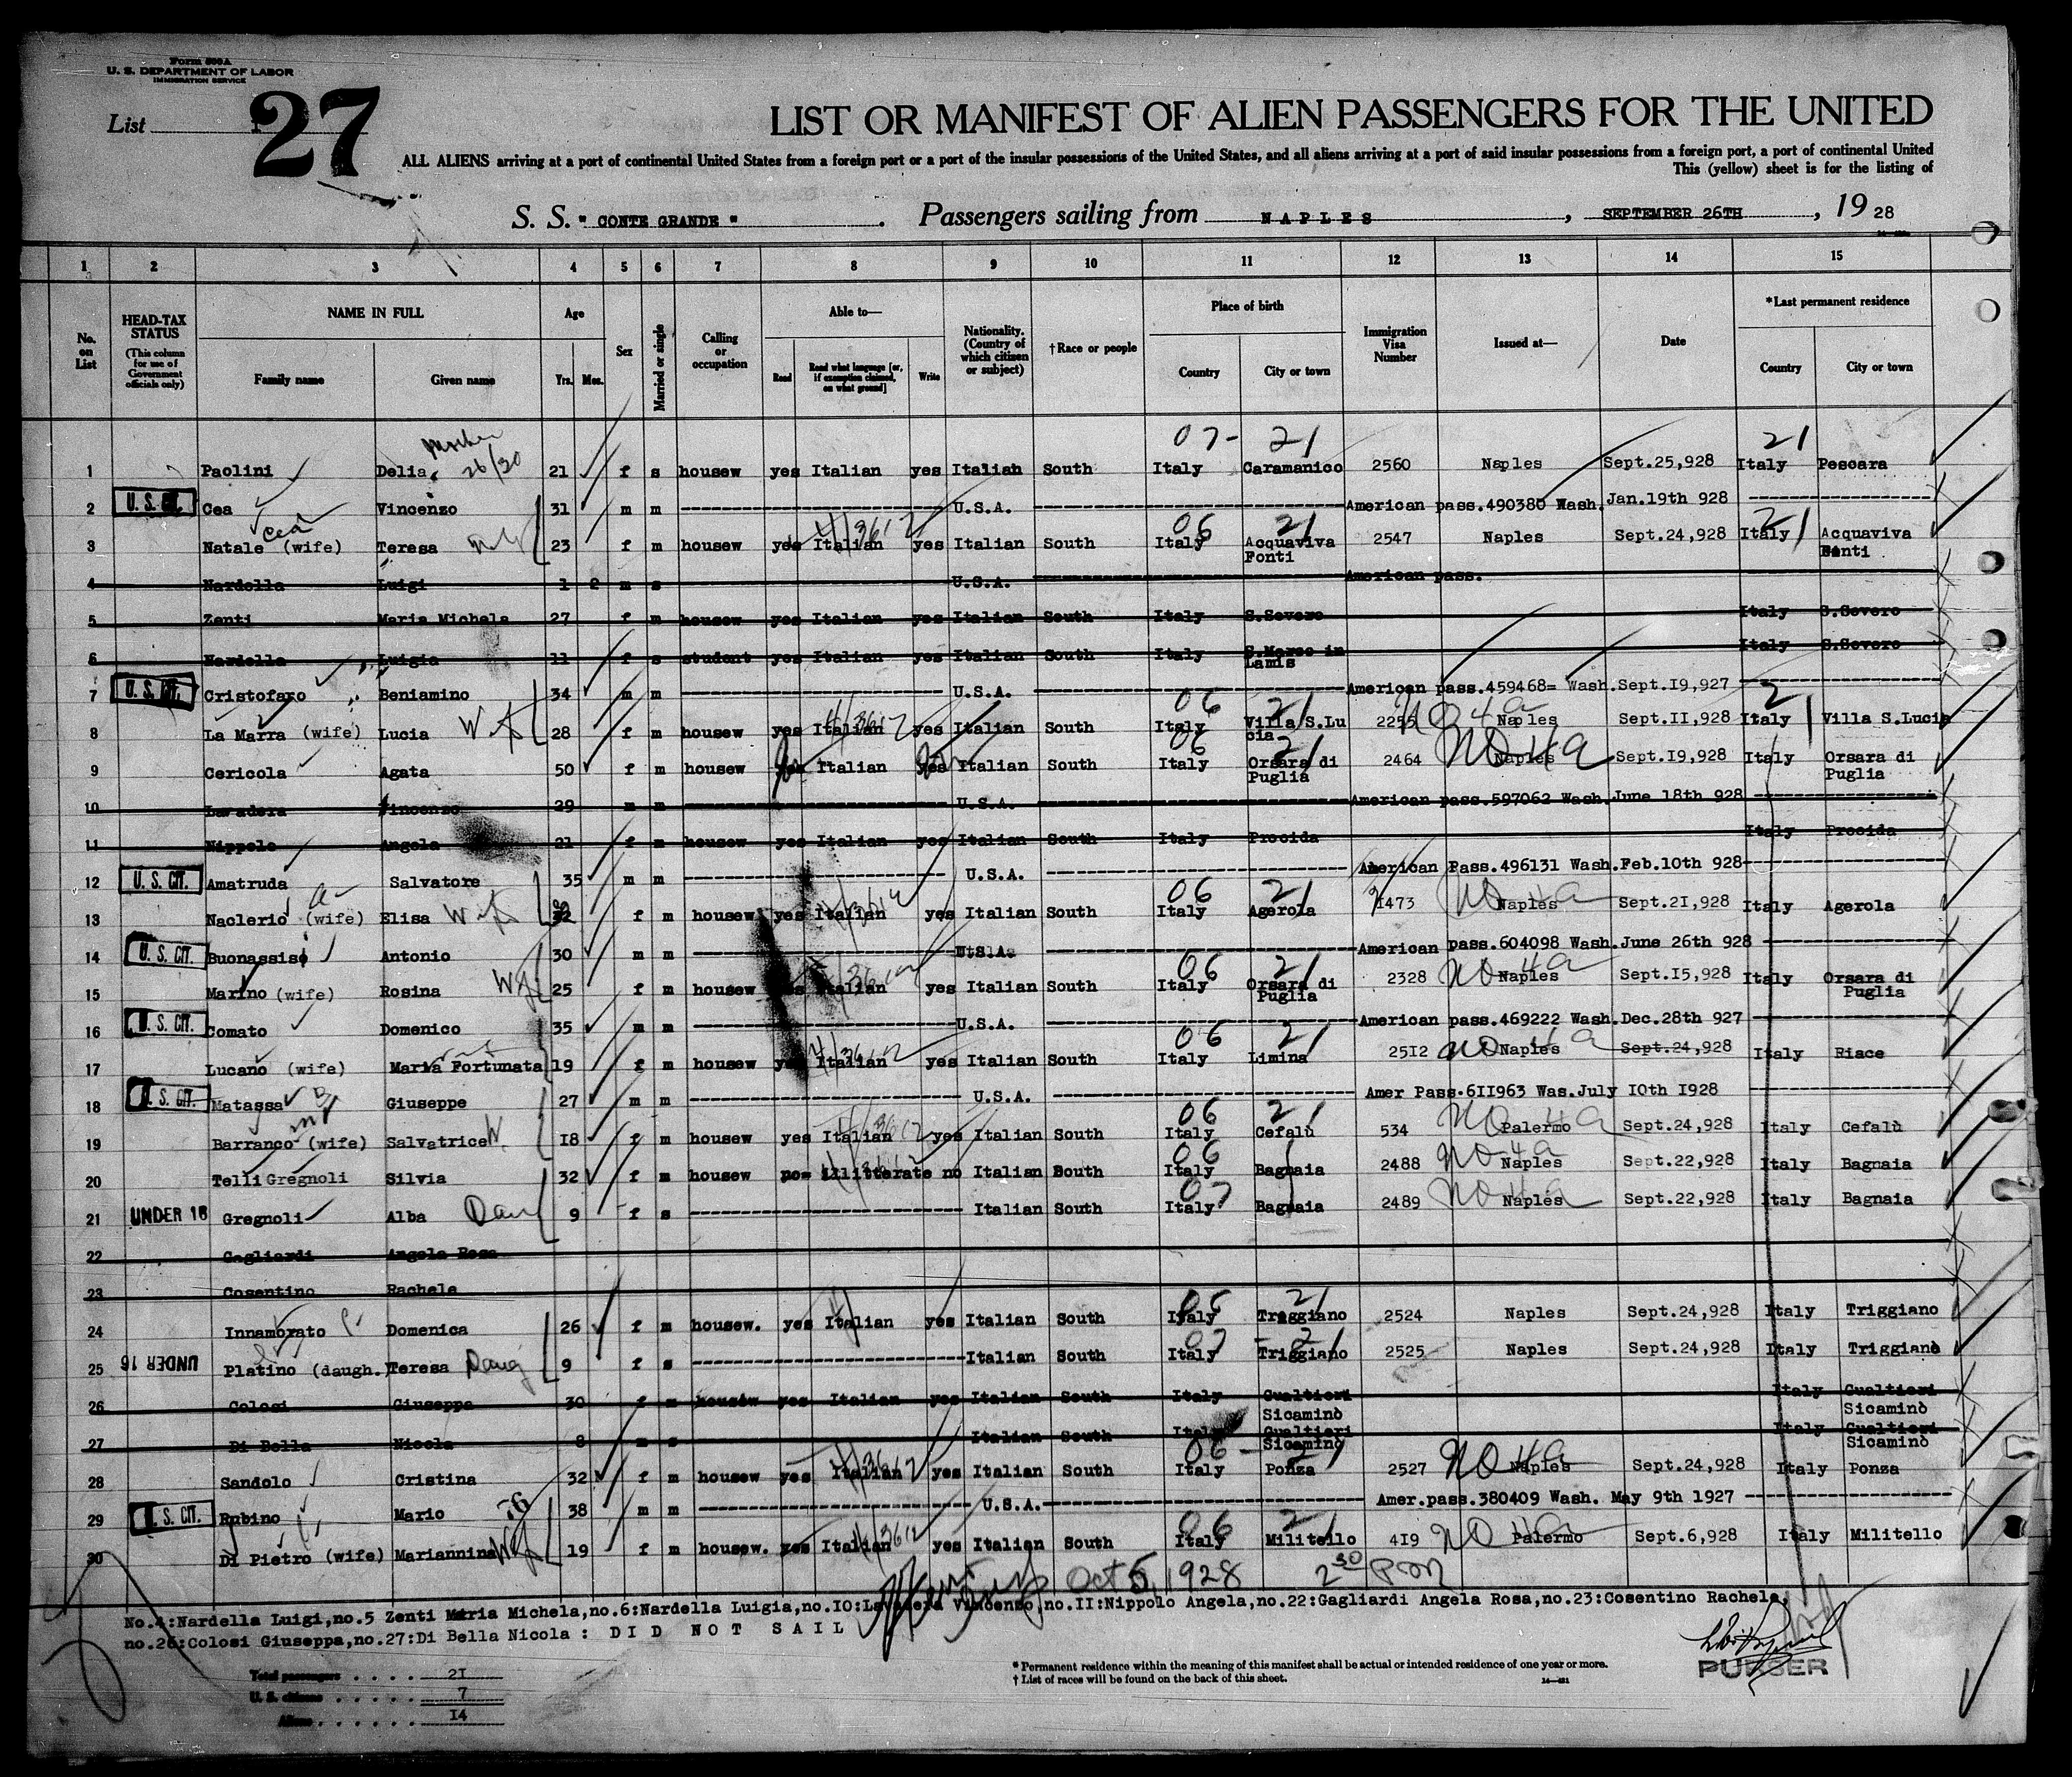 Form 500A
U. S. DEPARTMENT OF LABOR
IMMIGRATION SERVICE
List 27
LIST OR MANIFEST OF ALIEN PASSENGERS FOR THE UNITED
ALL ALIENS arriving at a port of continental United States from a foreign port or a port of the insular possessions of the United States, and all aliens arriving at a port of said insular possessions from a foreign port, a port of continental United
This (yellow) sheet is for the listing of
S. S. " CONTE GRANDE " . Passengers sailing from NAPLES , SEPTEMBER 26TH , 19 28
1 2 3 4 5 6 7 8 9 10 11 12 13 14 15
No. on List HEAD-TAX STATUS (This column for use of Government officials only) NAME IN FULL Family name Given name Age Yrs. Mos. Sex Married or single Calling or occupation Able to— Read Read what language [or, if exemption claimed, on what ground] Write Nationality. (Country of which citizen or subject) †Race or people Place of birth Country City or town Immigration Visa Number Issued at— Date *Last permanent residence Country City or town
Mother 07- 21 21
1 Paolini Delia 26/30 21 f s housew yes Italian yes Italian South Italy Caramanico 2560 Naples Sept.25,928 Italy Pescara
2 U. S. CIT. Cea Vincenzo 31 m m U.S.A. American pass.490380 Wash. Jan.19th 928
Cea 06 21 21
3 Natale (wife) Teresa 23 f m housew yes Italian yes Italian South Italy Acquaviva Fonti 2547 Naples Sept.24,928 Italy Acquaviva Fonti
4 Nardella Luigi 1 2 m s U.S.A. American pass.
5 Zenti Maria Michela 27 f m housew yes Italian yes Italian South Italy S.Severo Italy S.Severo
6 Nardella Luigia 11 f s student yes Italian yes Italian South Italy S.Marco in Lamis Italy S.Severo
7 U. S. CIT. Cristofaro Beniamino 34 m m U.S.A. American pass.459468= Wash. Sept.I9,927
06 21 No 4a
8 La Marra (wife) Lucia Wf 28 f m housew yes Italian yes Italian South Italy Villa S.Lucia 2255 Naples Sept.II,928 Italy Villa S.Lucia
06 21 No 4a
9 Cericola Agata 50 f m housew yes Italian yes Italian South Italy Orsara di Puglia 2464 Naples Sept.I9,928 Italy Orsara di Puglia
10 Lavadera Vincenzo 29 m m U.S.A. American pass.597062 Wash. June 18th 928
11 Nippolo Angela 21 f m housew yes Italian yes Italian South Italy Procida Italy Procida
12 U. S. CIT. Amatruda Salvatore 35 m m U.S.A. American Pass.496131 Wash. Feb.10th 928
06 21 No 4a
13 Naclerio (wife) Elisa Wf f m housew yes Italian yes Italian South Italy Agerola 1473 Naples Sept.2I,928 Italy Agerola
14 U. S. CIT. Buonassisi Antonio 30 m m U.S.A. American pass.604098 Wash. June 26th 928
06 21 No 4a
15 Marino (wife) Rosina Wf 25 f m housew yes Italian yes Italian South Italy Orsara di Puglia 2328 Naples Sept.I5,928 Italy Orsara di Puglia
16 U. S. CIT. Comato Domenico 35 m m U.S.A. American pass.469222 Wash. Dec.28th 927
06 21 No 4a
17 Lucano (wife) Maria Fortunata 19 f m housew yes Italian yes Italian South Italy Limina 25I2 Naples Sept.24,928 Italy Riace
18 U. S. CIT. Matassa Giuseppe 27 m m U.S.A. Amer Pass.6II963 Was. July I0th I928
06 21 No 4a
19 Barranco (wife) Salvatrice W I8 f m housew yes Italian yes Italian South Italy Cefalù 534 Palermo Sept.24,928 Italy Cefalù
06 No 4a
20 Telli Gregnoli Silvia 32 f m housew no= illitterate no Italian South Italy Bagnaia 2488 Naples Sept.22,928 Italy Bagnaia
07 No 4a
21 UNDER 16 Gregnoli Alba Dau 9 f s Italian South Italy Bagnaia 2489 Naples Sept.22,928 Italy Bagnaia
22 Gagliardi Angela Rosa
23 Cosentino Rachele
05 21
24 Innamorato Domenica 26 f m housew. yes Italian yes Italian South Italy Triggiano 2524 Naples Sept.24,928 Italy Triggiano
07 - 21
25 UNDER 16 Platino (daugh.) Teresa Daug 9 f s Italian South Italy Triggiano 2525 Naples Sept.24,928 Italy Triggiano
26 Colosi Giuseppa 30 f m housew yes Italian yes Italian South Italy Gualtieri Sicaminò Italy Gualtieri Sicaminò
27 Di Bella Nicola 8 m s Italian South Italy Gualtieri Sicaminò Italy Gualtieri Sicaminò
06 - 21 No 4a
28 Sandolo Cristina 32 f m housew yes Italian yes Italian South Italy Ponza 2527 Naples Sept.24,928 Italy Ponza
29 U. S. CIT. Rubino Mario 38 m m U.S.A. Amer.pass.380409 Wash. May 9th 1927
06 21 No 4a
30 Di Pietro (wife) Mariannina Wf 19 f m housew. yes Italian yes Italian South Italy Militello 4I9 Palermo Sept.6,928 Italy Militello
Oct 5, 1928 2 30 PM
No.4:Nardella Luigi,no.5 Zenti Maria Michela,no.6:Nardella Luigia,no.I0:Lavadera Vincenzo,no.II:Nippolo Angela,no.22:Gagliardi Angela Rosa,no.23:Cosentino Rachela,
no.26:Colosi Giuseppa,no.27:Di Bella Nicola : DID NOT SAIL
PURSER
Total passengers . . . . 2I
U. S. citizens . . . . . 7
Aliens . . . . . . I4
* Permanent residence within the meaning of this manifest shall be actual or intended residence of one year or more.
† List of races will be found on the back of this sheet.